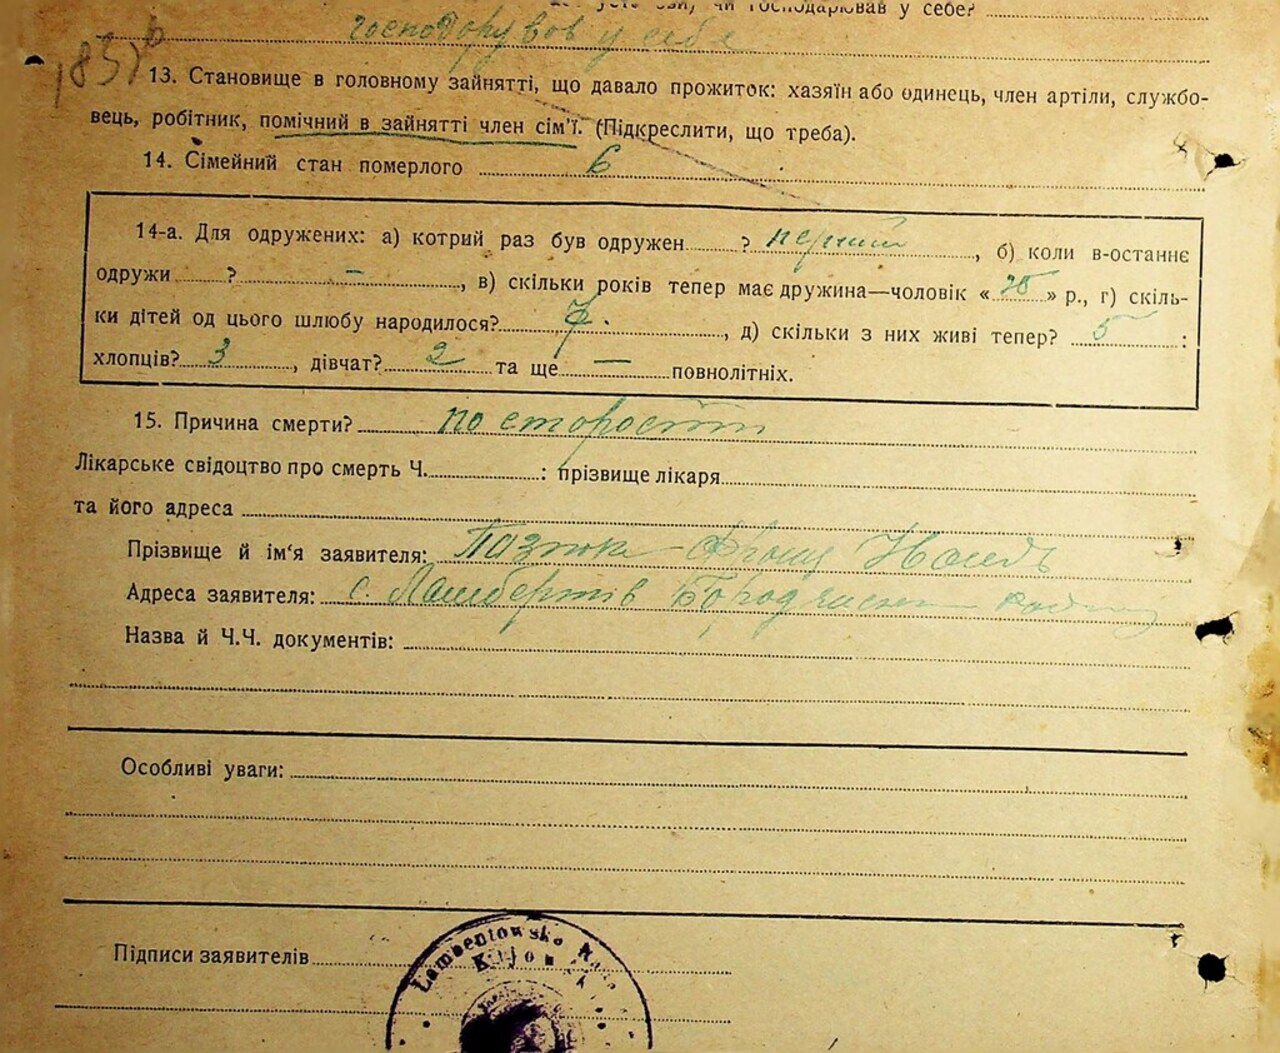 чи господарював у себе?
господорував у себе
13. Становище в головному зайнятті, що давало прожиток: хазяїн або одинець, член артіли, службо-
вець, робітник, помічний в зайнятті член сім'ї. (Підкреслити, що треба).
14. Сімейний стан померлого 6
14-а. Для одружених: а) котрий раз був одружен ? перший, б) коли в-останнє
одружи ? —, в) скільки років тепер має дружина—чоловік « » р., г) скіль-
ки дітей од цього шлюбу народилося? 7., д) скільки з них живі тепер? 5 :
хлопців? 3, дівчат? 2 та ще — повнолітніх.
15. Причина смерти? по старості
Лікарське свідоцтво про смерть Ч. : прізвище лікаря
та його адреса
Прізвище й ім'я заявителя:
Адреса заявителя: с.
Назва й Ч.Ч. документів:
Особливі уваги:
Підписи заявителів